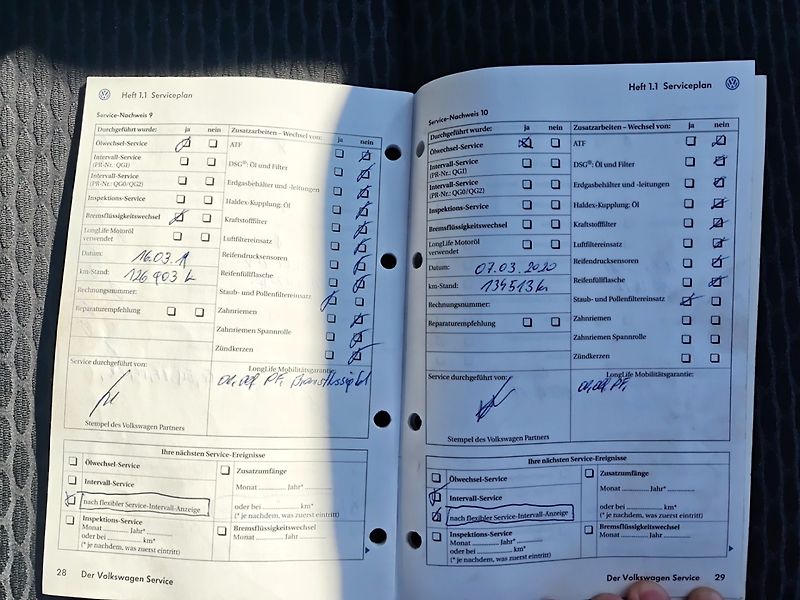 Heft 1.1 Serviceplan
Service-Nachweis 9
Durchgeführt wurde: ja nein
Ölwechsel-Service
Intervall-Service
(PR-Nr.: QG1)
Intervall-Service
(PR-Nr.: QG0/QG2)
Inspektions-Service
Bremsflüssigkeitswechsel
LongLife Motoröl
verwendet
Datum: 16.03.
km-Stand: 126903 k
Rechnungsnummer:
Reparaturempfehlung
Zusatzarbeiten – Wechsel von: ja nein
ATF
DSG®: Öl und Filter
Erdgasbehälter und -leitungen
Haldex-Kupplung: Öl
Kraftstofffilter
Luftfiltereinsatz
Reifendrucksensoren
Reifenfüllflasche
Staub- und Pollenfiltereinsatz
Zahnriemen
Zahnriemen Spannrolle
Zündkerzen
Service durchgeführt von:
Stempel des Volkswagen Partners
LongLife Mobilitätsgarantie:
PF,
Ihre nächsten Service-Ereignisse
Ölwechsel-Service
Intervall-Service
nach flexibler Service-Intervall-Anzeige
Inspektions-Service
Monat Jahr*
oder bei km*
(* je nachdem, was zuerst eintritt)
Zusatzumfänge
Monat Jahr*
oder bei km*
(* je nachdem, was zuerst eintritt)
Bremsflüssigkeitswechsel
Monat Jahr
28 Der Volkswagen Service
Heft 1.1 Serviceplan
Service-Nachweis 10
Durchgeführt wurde: ja nein
Ölwechsel-Service
Intervall-Service
(PR-Nr.: QG1)
Intervall-Service
(PR-Nr.: QG0/QG2)
Inspektions-Service
Bremsflüssigkeitswechsel
LongLife Motoröl
verwendet
Datum: 07.03.2020
km-Stand: 134513 k
Rechnungsnummer:
Reparaturempfehlung
Zusatzarbeiten – Wechsel von: ja nein
ATF
DSG®: Öl und Filter
Erdgasbehälter und -leitungen
Haldex-Kupplung: Öl
Kraftstofffilter
Luftfiltereinsatz
Reifendrucksensoren
Reifenfüllflasche
Staub- und Pollenfiltereinsatz
Zahnriemen
Zahnriemen Spannrolle
Zündkerzen
Service durchgeführt von:
Stempel des Volkswagen Partners
LongLife Mobilitätsgarantie:
PF.
Ihre nächsten Service-Ereignisse
Ölwechsel-Service
Intervall-Service
nach flexibler Service-Intervall-Anzeige
Inspektions-Service
Monat Jahr*
oder bei km*
(* je nachdem, was zuerst eintritt)
Zusatzumfänge
Monat Jahr*
oder bei km*
(* je nachdem, was zuerst eintritt)
Bremsflüssigkeitswechsel
Monat Jahr
Der Volkswagen Service 29